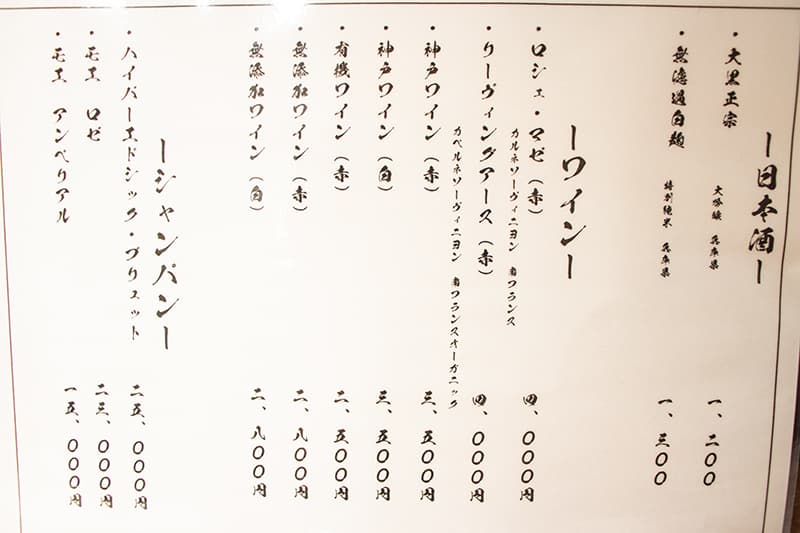 ー日本酒ー
・大黒正宗 大吟醸 兵庫県 一、二〇〇
・無濾過白麹 特別純米 兵庫県 一、三〇〇
ーワインー
・ロシェ・マゼ(赤) 四、〇〇〇円
カルネソーヴィニヨン 南フランス
・リーヴィングアース(赤) 四、〇〇〇円
カベルネソーヴィニヨン 南フランスオーガニック
・神戸ワイン(赤) 三、五〇〇円
・神戸ワイン(白) 三、五〇〇円
・有機ワイン(赤) 二、五〇〇円
・無添加ワイン(赤) 二、八〇〇円
・無添加ワイン(白) 二、八〇〇円
ーシャンパンー
・ハイパーエドシック・ブリュット 二五、〇〇〇円
・モエ ロゼ 二三、〇〇〇円
・モエ アンペリアル 一五、〇〇〇円